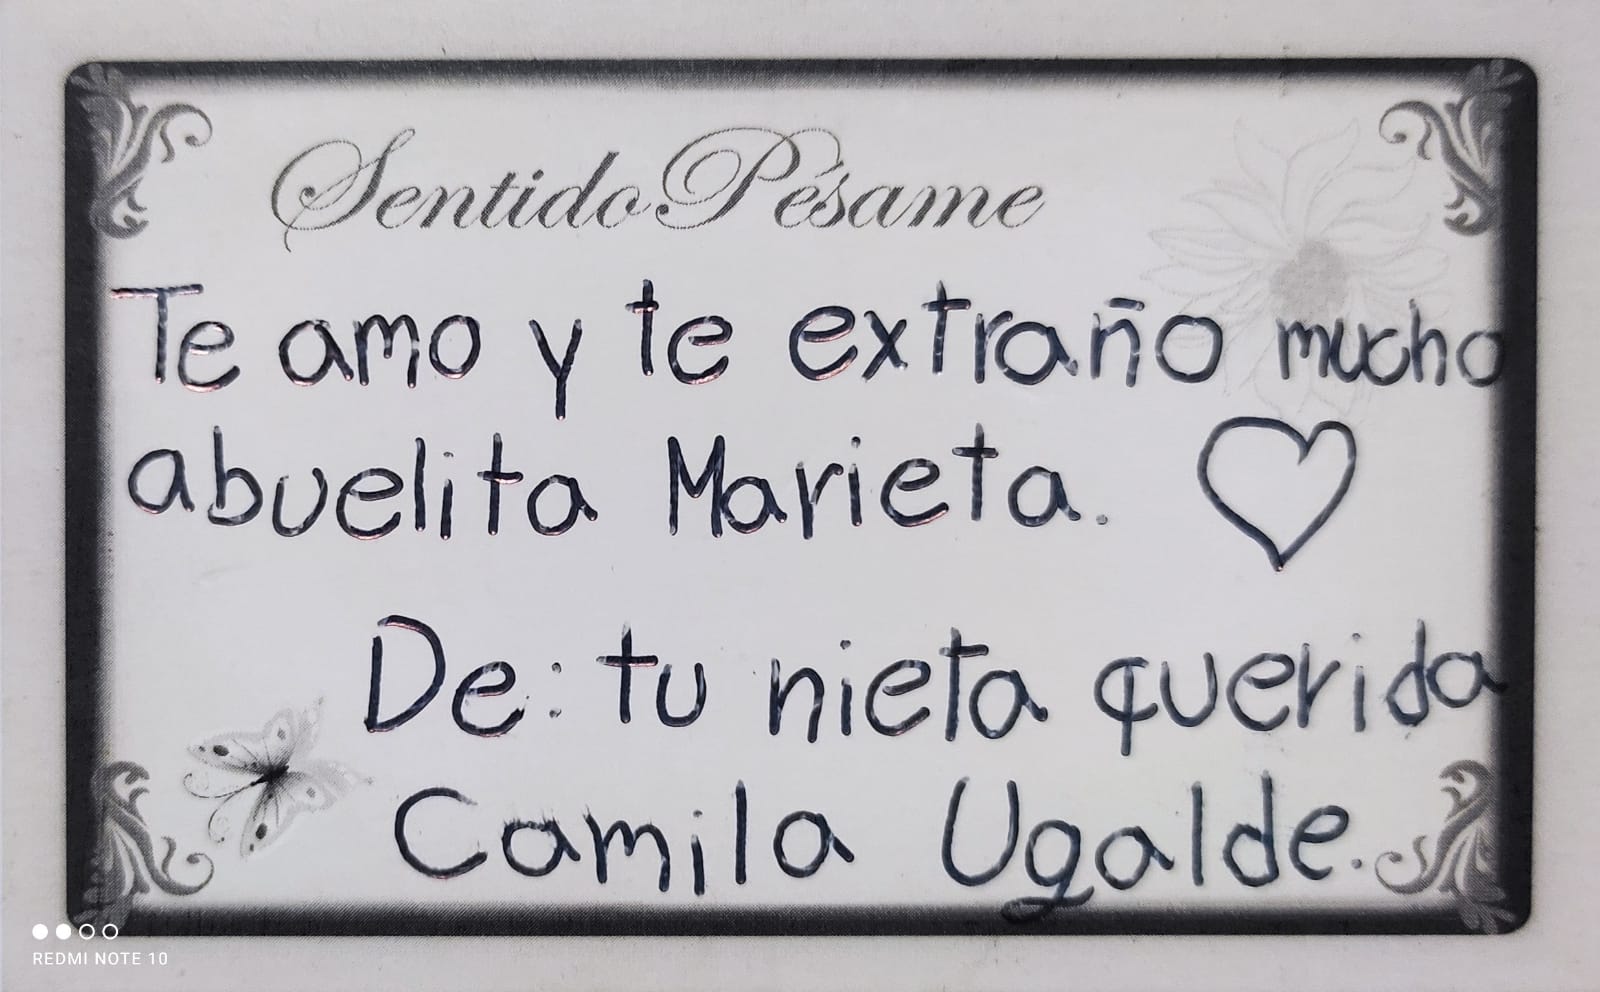 Sentido Pésame
Te amo y te extraño mucho
abuelita Marieta.
De: tu nieta querida
Camila Ugalde.
REDMI NOTE 10